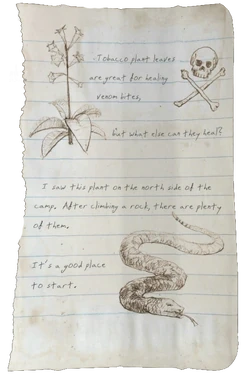 -Tobacco plant leaves
are great for healing
venom bites,
but what else can they heal?
I saw this plant on the north side of the
camp. After climbing a rock, there are plenty
of them.
It's a good place
to start.